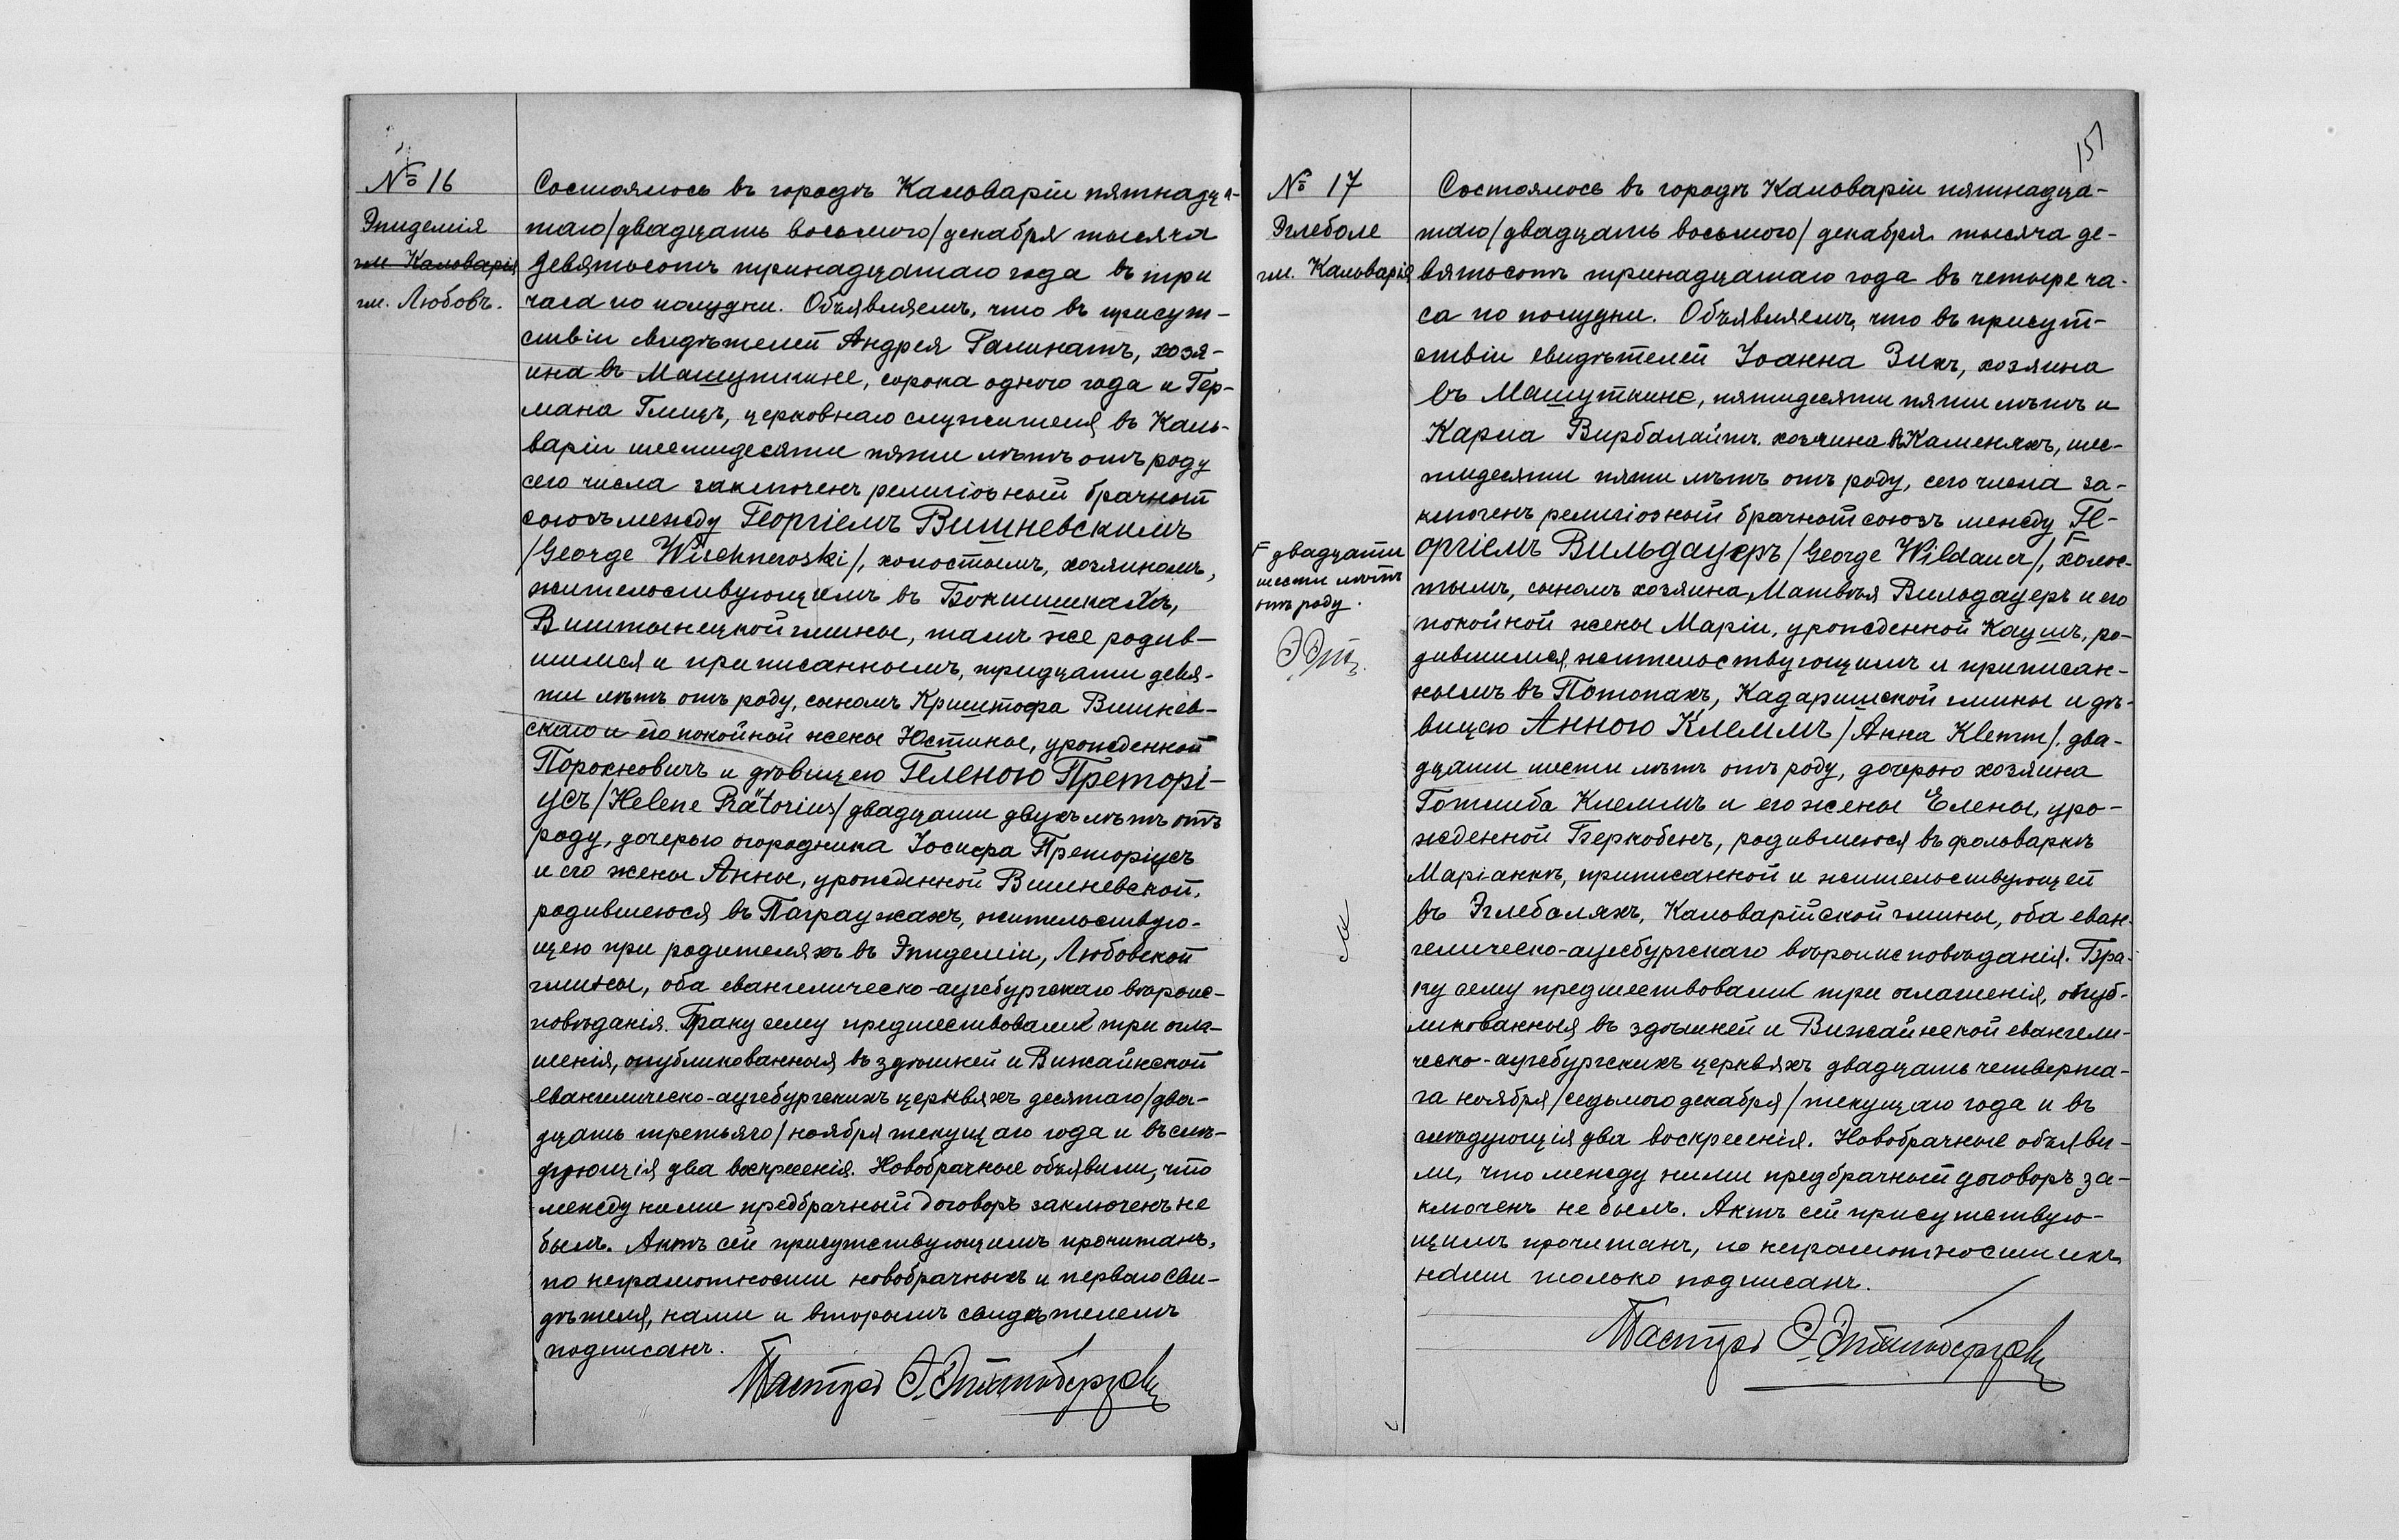 № 16
Эпидемія
гм. Кальварія
гм. Любовъ.
Состоялось въ городѣ Кальваріи пятнадца-
таго/двадцать восьмого/декабря тысяча
девятьсотъ тринадцатаго года въ три
часа по полудни. Объявляемъ, что въ присут-
ствіи свидѣтелей Андрея Галинатъ, хозя-
ина въ Машуткине, сорока одного года и Гер-
мана Глицъ, церковнаго служителя въ Каль-
варіи шестидесяти пяти лѣтъ отъ роду
сего числа заключенъ религіозный брачный
союзъ между Георгіемъ Вишневскимъ
/George Wischnewski/, холостымъ, хозяиномъ,
жительствующимъ въ Бокшишкахъ,
Виштынецкой гмины, тамъ же родив-
шимся и приписаннымъ, тридцати девя-
ти лѣтъ отъ роду, сыномъ Криштофа Вишнев-
скаго и его покойной жены Юстины, урожденной
Порокновичъ и дѣвицею Геленою Преторі-
усъ/Helene Prätorius/двадцати двухъ лѣтъ отъ
роду, дочерью огородника Іосифа Преторіусъ
и его жены Анны, урожденной Вишневской,
родившеюся въ Паграужахъ, жительствую-
щею при родителяхъ въ Эпидеміи, Любовской
гмины, оба евангелическо-аугсбургскаго вѣроис-
повѣданія. Браку сему предшествовали три огла-
шенія, опубликованныя въ здѣшней и Вижайнской
евангелическо-аугсбургскихъ церквяхъ десятаго/два-
дцать третьяго/ноября текущаго года и въ слѣ-
дующія два воскресенія. Новобрачные объявили, что
между ними предбрачный договоръ заключенъ не
былъ. Актъ сей присутствующимъ прочитанъ,
по неграмотности новобрачныхъ и перваго сви-
дѣтеля, нами и вторымъ свидѣтелемъ
подписанъ.
Пасторъ
151
№ 17
Эглеболе
гм. Кальварія
Состоялось въ городѣ Кальваріи пятнадца-
таго/двадцать восьмого/декабря тысяча де-
вятьсотъ тринадцатаго года въ четыре ча-
са по полудни. Объявляемъ, что въ присут-
ствіи свидѣтелей Іоанна Зикъ, хозяина
въ Машуткине, пятидесяти пяти лѣтъ и
Карла Вирбалайтъ хозяина въ Каменяхъ, ше-
стидесяти пяти лѣтъ отъ роду, сего числа за-
ключенъ религіозный брачный союзъ между Ге-
оргіемъ Вильдауеръ/George Wildauer/, Г холос-
тымъ, сыномъ хозяина, Матвѣя Вильдауеръ и его
покойной жены Маріи, урожденной Каушъ, ро-
дившимся, жительствующимъ и приписан-
нымъ въ Потопахъ, Кадаришской гмины и дѣ-
вицею Анною Клеммъ/Анна Klemm/. два-
дцати шести лѣтъ отъ роду, дочерью хозяина
Готлиба Клеммъ и его жены Елены, уро-
жденной Беркобенъ, родившеюся въ фольваркѣ
Маріанкѣ, приписанной и жительствующей
въ Эглеболяхъ, Кальварійской гмины, оба еван-
гелическо-аугсбургскаго вѣроисповѣданія. Бра-
ку сему предшествовали три оглашенія, опуб-
ликованныя въ здѣшней и Вижайнской евангели-
ческо-аугсбургскихъ церквяхъ двадцать четверта-
га ноября/седьмого декабря/текущаго года и въ
слѣдующія два воскресенія. Новобрачные объяви-
ли, что между ними предбрачный договоръ за-
ключенъ не былъ. Актъ сей присутствую-
щимъ прочитанъ, по неграмотности ихъ,
нами только подписанъ.
Г двадцати
шести лѣтъ
отъ роду.
Пасторъ